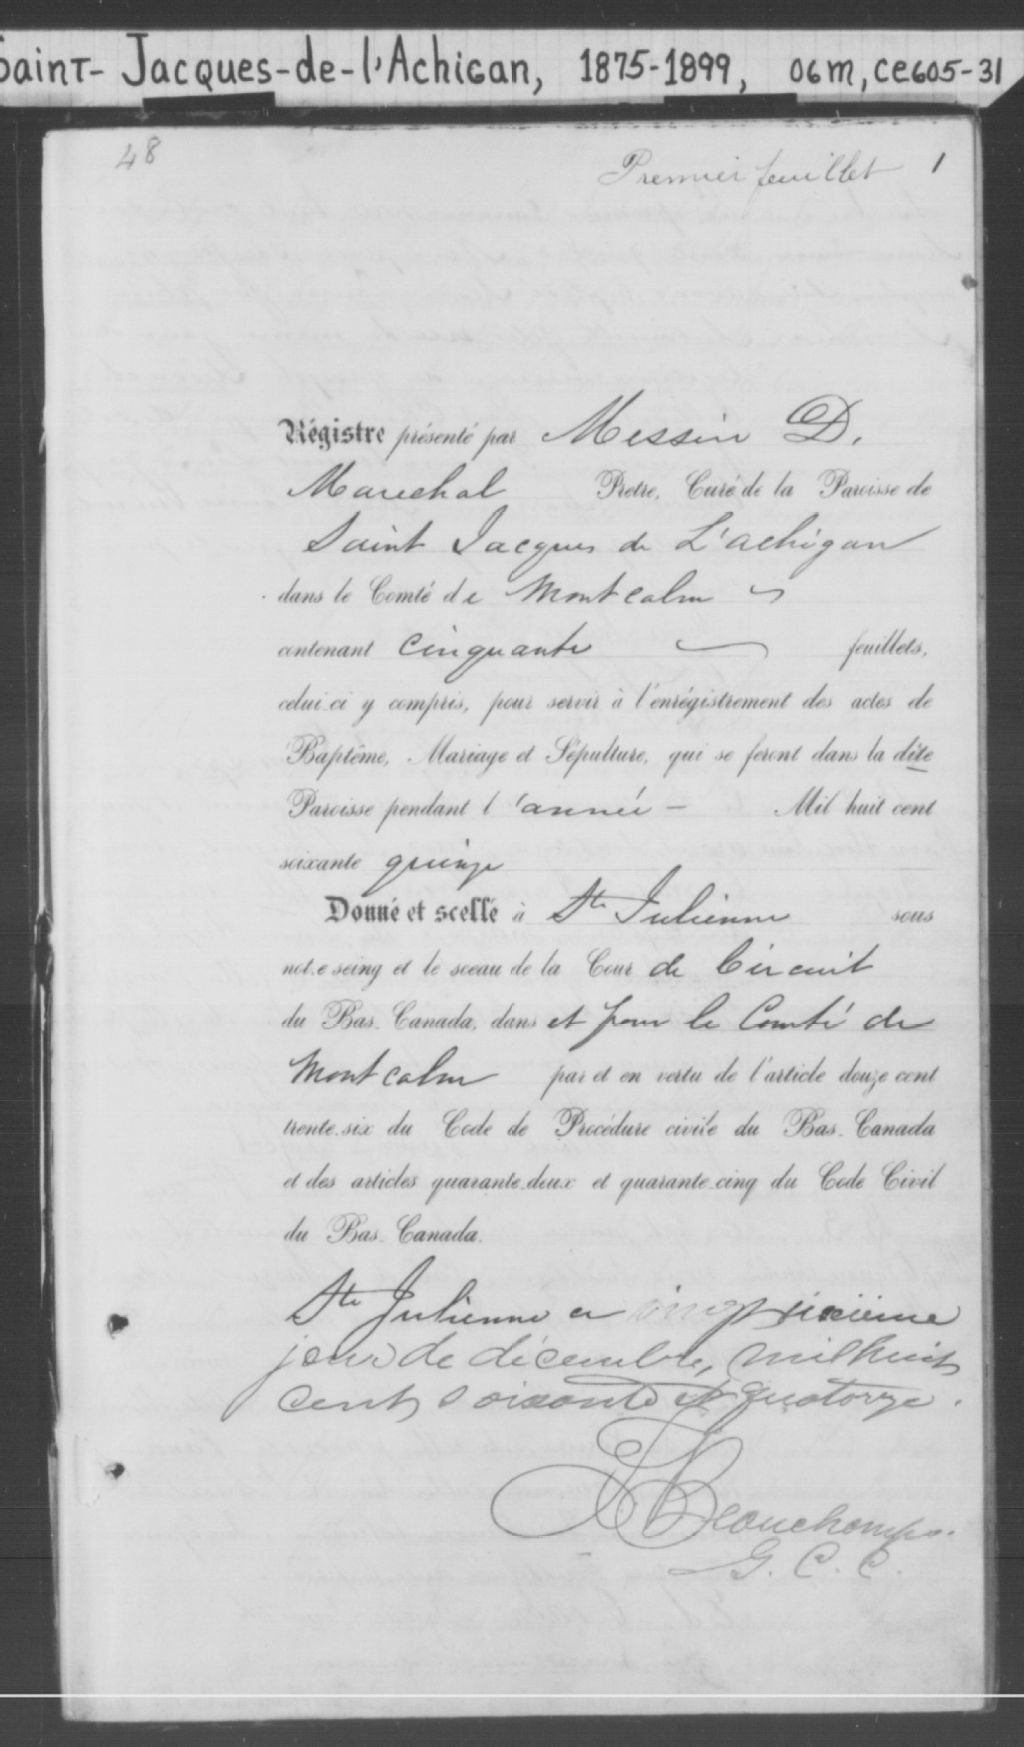 Saint-Jacques-de-l'Achigan, 1875-1899, 06m, CE605-31
48
Premier feuillet 1
Régistre présenté par Messire D.
Marechal Pretre, Curé de la Paroisse de
Saint Jacques de L'achigan
dans le Comté de Montcalm
contenant cinquante feuillets,
celui-ci y compris, pour servir à l'enrégistrement des actes de
Baptême, Mariage et Sépulture, qui se feront dans la dite
Paroisse pendant l'année - Mil huit cent
soixante quinze
Donné et scellé à Ste Julienne sous
notre seing et le sceau de la Cour de Circuit
du Bas-Canada, dans et pour le Comté de
Montcalm par et en vertu de l'article douze cent
trente-six du Code de Procédure civile du Bas-Canada
et des articles quarante-deux et quarante-cinq du Code Civil
du Bas-Canada.
Ste Julienne ce vingt sixième
jour de décembre, mil huit
cent soixante et quatorze.
Beauchamp
G. C. C.